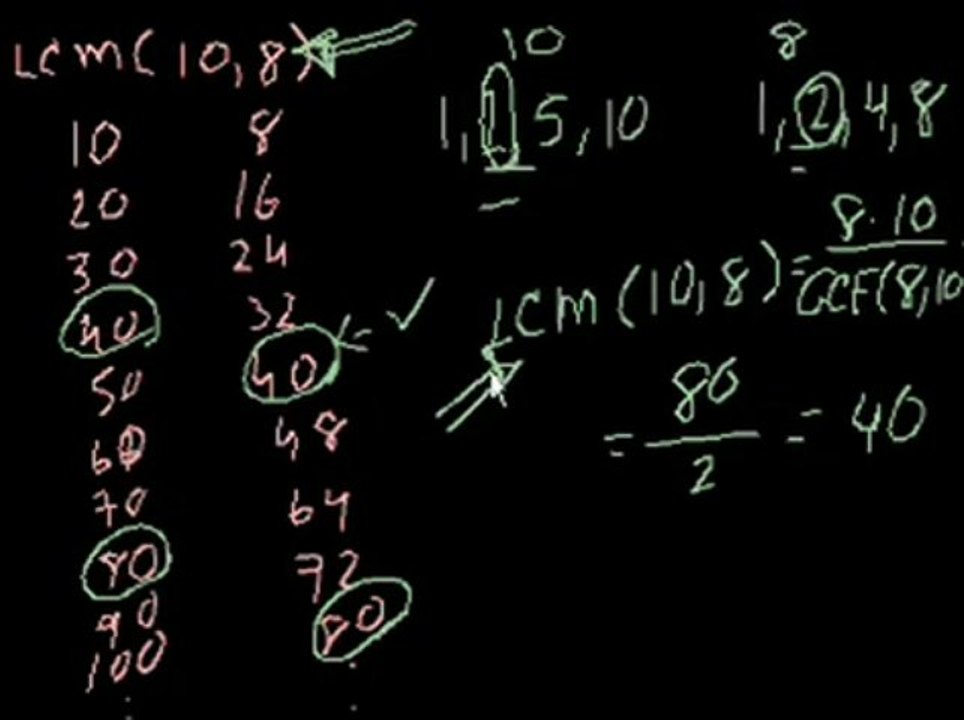 LCM(10,8)
10
20
30
40
50
60
70
80
90
100
8
16
24
32
40
48
64
72
80
10
1, 2, 5, 10
8
1, 2, 4, 8
LCM(10,8) = 8·10
GCF(8,10
= 80
2
= 40